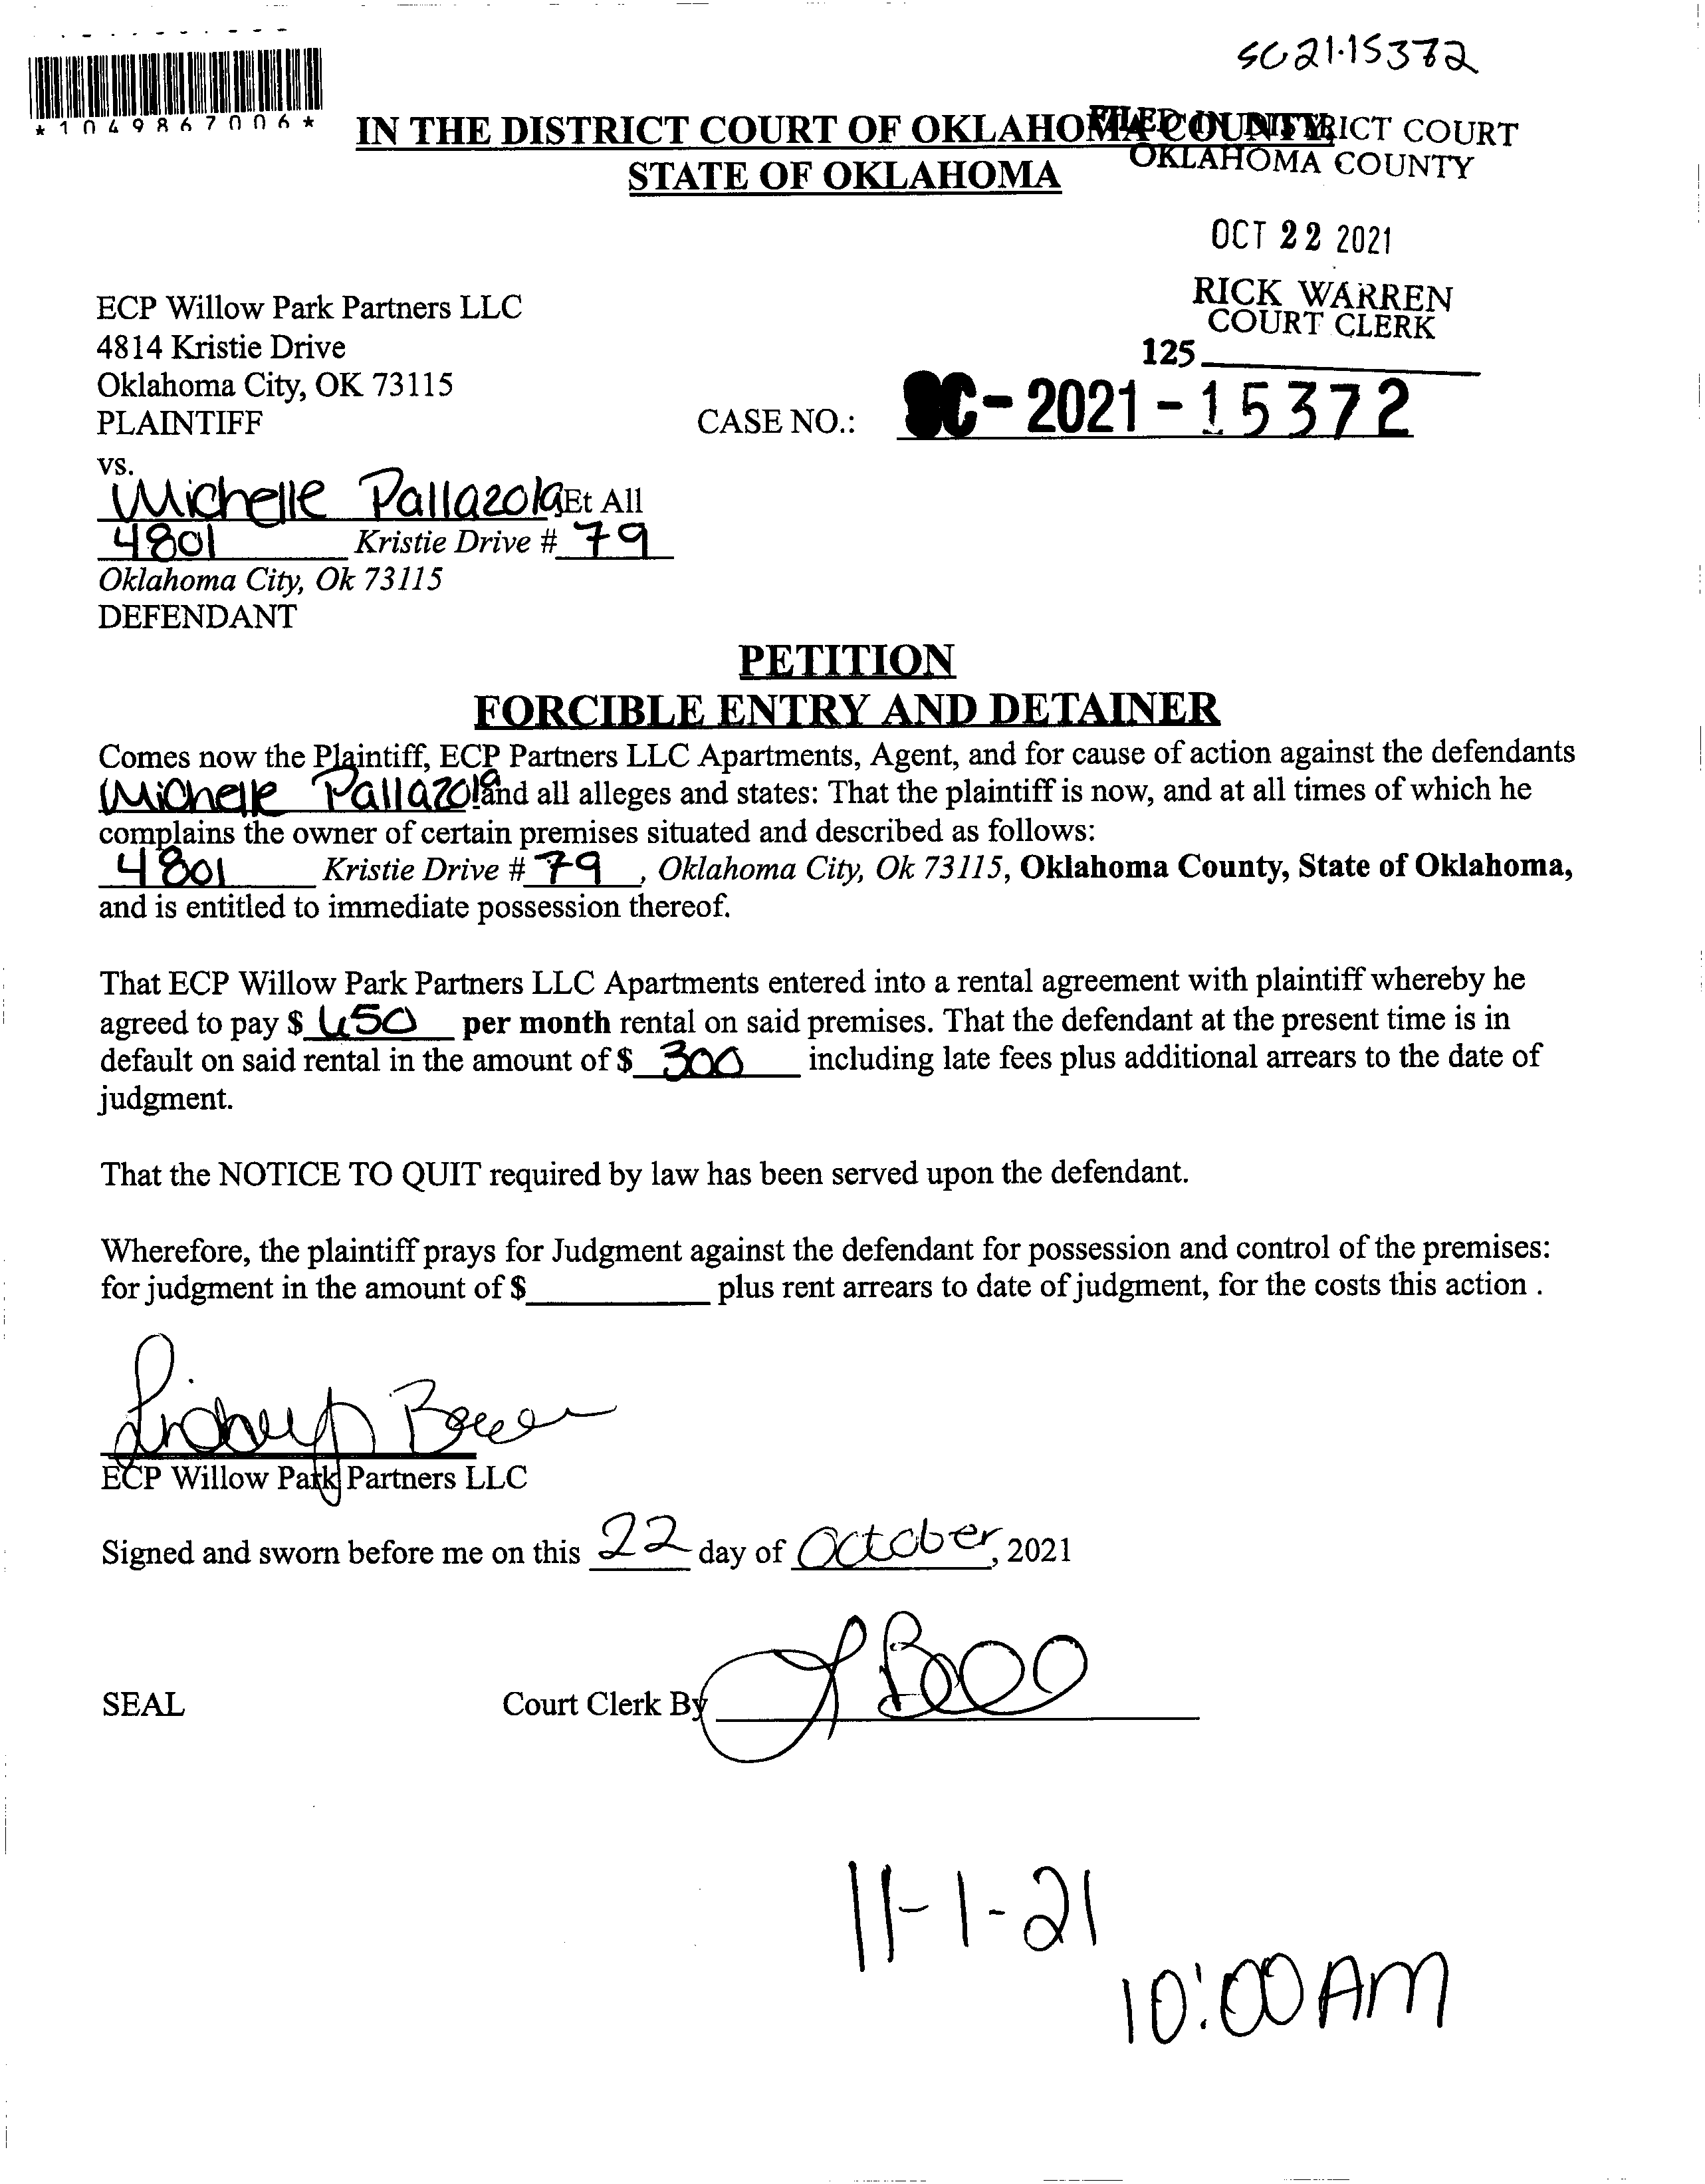 SC21-15372
*1049867006*
IN THE DISTRICT COURT OF OKLAHOMA COUNTY,
STATE OF OKLAHOMA
FILED IN DISTRICT COURT
OKLAHOMA COUNTY
OCT 22 2021
RICK WARREN
COURT CLERK
125
ECP Willow Park Partners LLC
4814 Kristie Drive
Oklahoma City, OK 73115
PLAINTIFF
CASE NO.: SC-2021-15372
vs.
Michelle Pallazola Et All
4801 Kristie Drive # 79
Oklahoma City, Ok 73115
DEFENDANT
PETITION
FORCIBLE ENTRY AND DETAINER
Comes now the Plaintiff, ECP Partners LLC Apartments, Agent, and for cause of action against the defendants
Michelle Pallazola and all alleges and states: That the plaintiff is now, and at all times of which he
complains the owner of certain premises situated and described as follows:
4801 Kristie Drive # 79, Oklahoma City, Ok 73115, Oklahoma County, State of Oklahoma,
and is entitled to immediate possession thereof.
That ECP Willow Park Partners LLC Apartments entered into a rental agreement with plaintiff whereby he
agreed to pay $ 650 per month rental on said premises. That the defendant at the present time is in
default on said rental in the amount of $ 300 including late fees plus additional arrears to the date of
judgment.
That the NOTICE TO QUIT required by law has been served upon the defendant.
Wherefore, the plaintiff prays for Judgment against the defendant for possession and control of the premises:
for judgment in the amount of $ plus rent arrears to date of judgment, for the costs this action .
ECP Willow Park Partners LLC
Signed and sworn before me on this 22 day of October, 2021
SEAL
Court Clerk By
11-1-21
10:00 AM